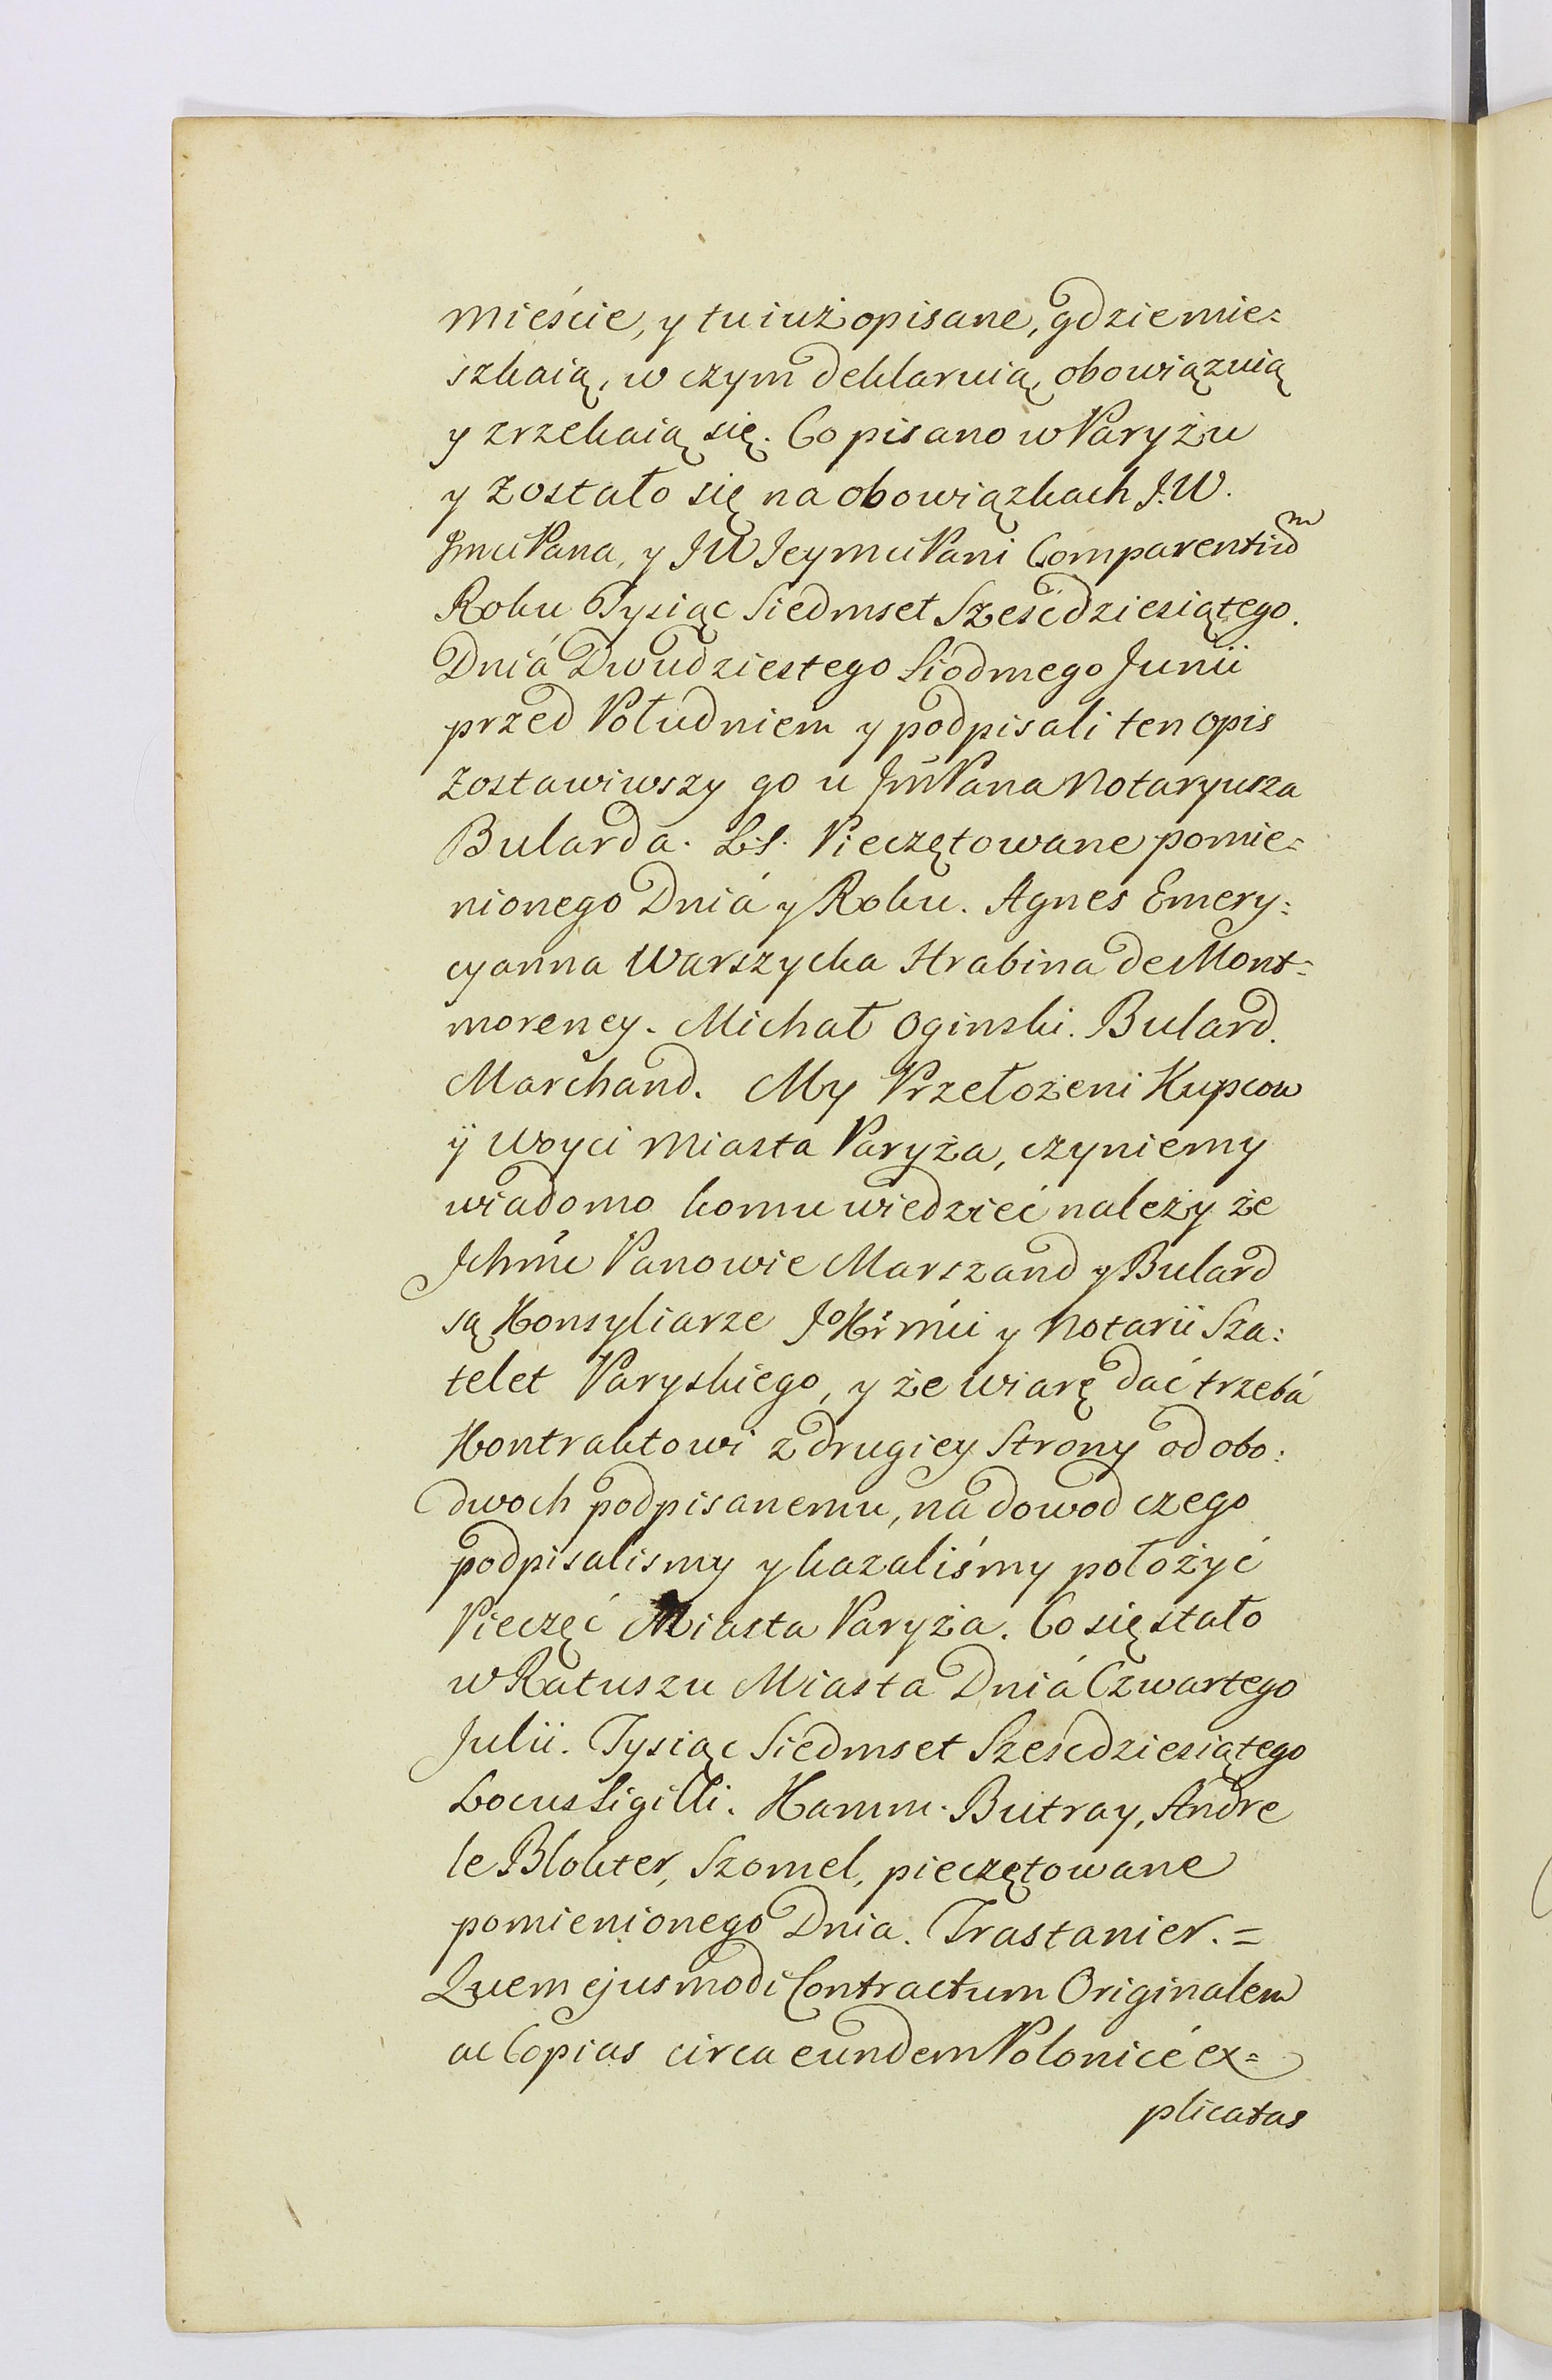 mieście, y tu iuż opisane, gdzie mie=
szkaią, w czym deklaruią, obowiązuią
y zrzekaią się. Co pisano w Paryżu
y zostało się na obowiązkach J.W.
Jmci Pana, y JW Jeymci Pani Comparentium
Roku Tysiąc Siedmset Sześćdziesiątego.
Dniá Dwudziestego Siodmego Junii
przed Południem y podpisali ten opis
zostawiwszy go u Jm̃ Pana Notaryusza
Bularda. L.S. Pieczętowane pomie=
nionego Dniá y Roku. Agnes Emery=
cyanna Warszycka Hrabina de Mont=
morency. Michał Oginski. Bulard.
Marchand. My Przełożeni Kupcow
ÿ Woyci Miasta Paryża, czyniemy
wiadomo komu wiedzieć należy że
Jchmć Panowie Marszand y Bulard
są Konsyliarze JoKr̃mći y Notarii Sza:
telet Paryskiego, y że wiarę dać trzebá
Kontraktowi z drugiey Strony od obo:
dwoch podpisanemu, na dowod czego
podpisalismy y kazaliśmy położyć
Pieczęć Miasta Paryża. Co się stało
w Ratuszu Miasta Dniá Czwartego
Julii. Tysiąc Siedmset Szescdziesiątego
Locus Sigilli. Kamm. Butray, Andre
le Blokter, Szomel, pieczętowane
pomienionego Dnia. Trastanier. =
Quem ejusmodi Contractum Originalem
ac Copias circa eundem Polonicé ex=
plicatas